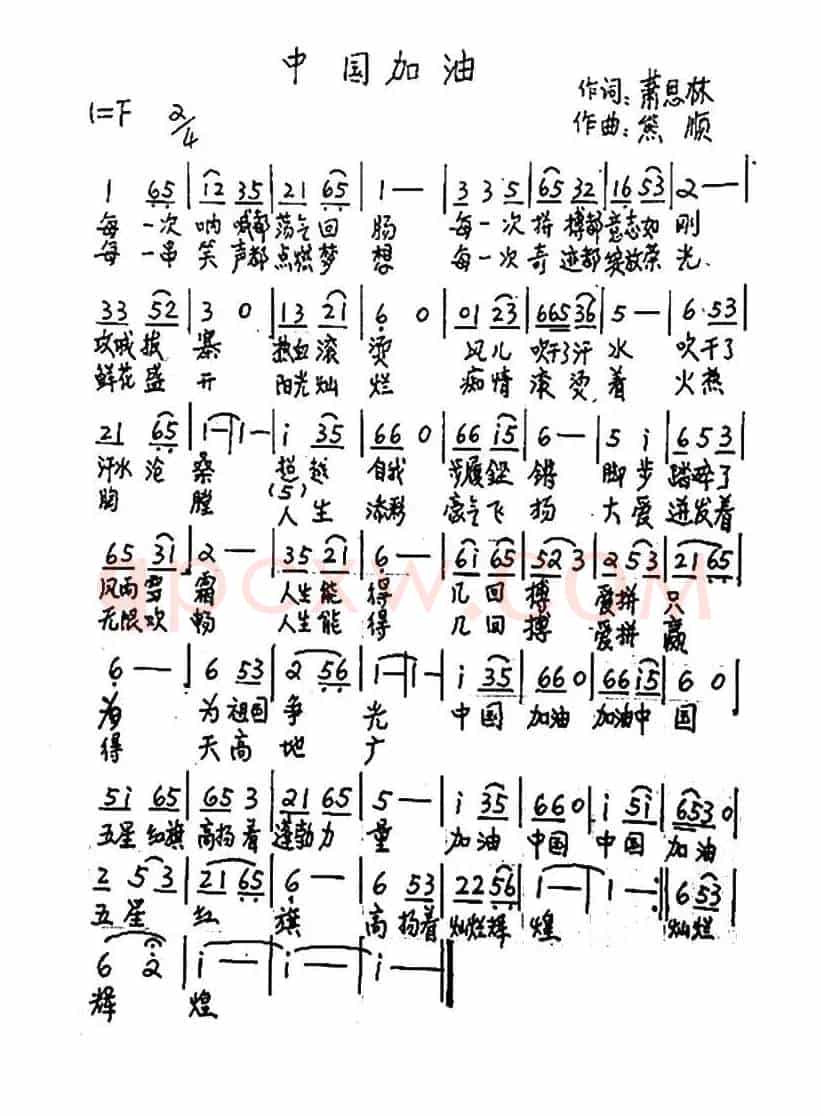 中国加油
作词:萧思林
1=F 2/4
作曲:熊顺
1 65 | 12 35 | 21 65 | 1 — | 3 3 5 | 65 32 | 16 53 | 2 — |
每一次呐喊都荡气回肠 每一次拼搏都意志如刚
每一串笑声都点燃梦想 每一次奇迹都绽放荣光.
33 52 | 3 0 | 13 21 | 6 0 | 01 23 | 665 36 | 5 — | 6· 53 |
攻城拔寨 热血滚烫 风儿吹干了汗水 吹干了
鲜花盛开 阳光灿烂 痴情滚烫着 火热
21 65 | 1 — | 1 — | i 35 | 66 0 | 66 i5 | 6 — | 5 i | 6 5 3 |
汗水沧桑 超越自我 步履铿锵 脚步踏碎了
(5)
胸膛 人生添彩 豪气飞扬 大爱迸发着
65 31 | 2 — | 35 21 | 6 — | 6i 65 | 52 3 | 2 5 3 | 21 65 |
风雨雪霜 人生能得几回搏 爱拼只
无限欢畅 人生能得几回搏 爱拼赢
6 — | 6 53 | 2 56 | 1 — | 1 — | i 35 | 66 0 | 66 i5 | 6 0 |
为 为祖国争光 中国加油 加油中国
得 天高地广
5i 65 | 65 3 | 21 65 | 5 — | i 35 | 66 0 | i 5i | 653 0 |
五星红旗高扬着蓬勃力量 加油中国 中国加油
2 5 3 | 21 65 | 6 — | 6 53 | 22 56 | 1 — | 1 — :| 6 53 |
五星红旗 高扬着灿烂辉煌 灿烂
6 2 | i — | i — | i — ||
辉煌
qpcxw.com